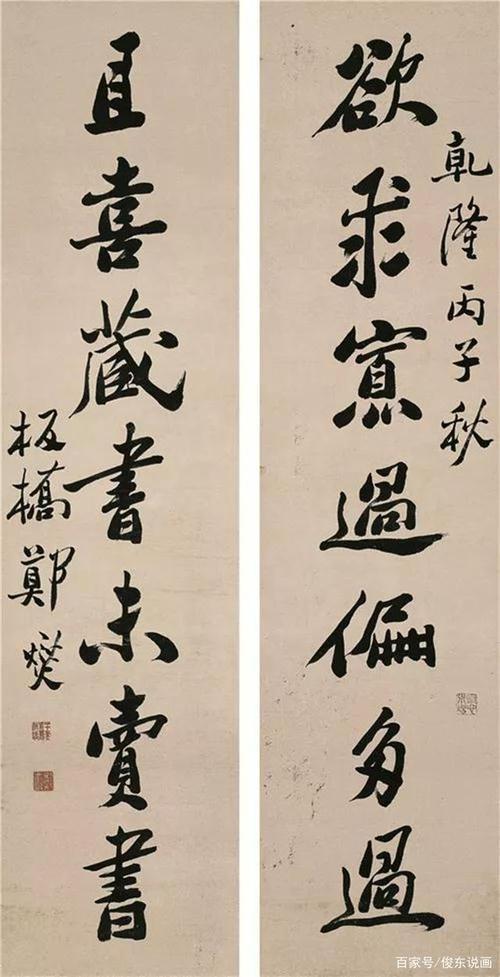 乾隆丙子秋
欲求寡過偏多過
且喜藏書未賣書
板橋鄭燮
百家号/俊东说画